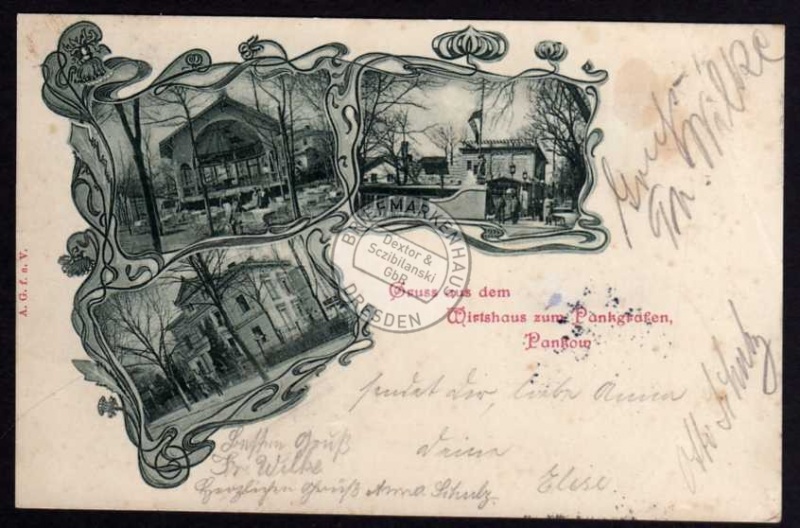 A. G. f. a. V.
BRIEFMARKENHAUS
Dextor &
Sczibilanski
GbR
DRESDEN
Gruss aus dem
Wirtshaus zum Pankgrafen,
Pankow
sendet dir, liebe Anna
Deine
Elise.
Besten Gruß
Fr. Wilke
Herzlichen Gruß Anna Schulz
Gruß
Wilke
Otto Schulz